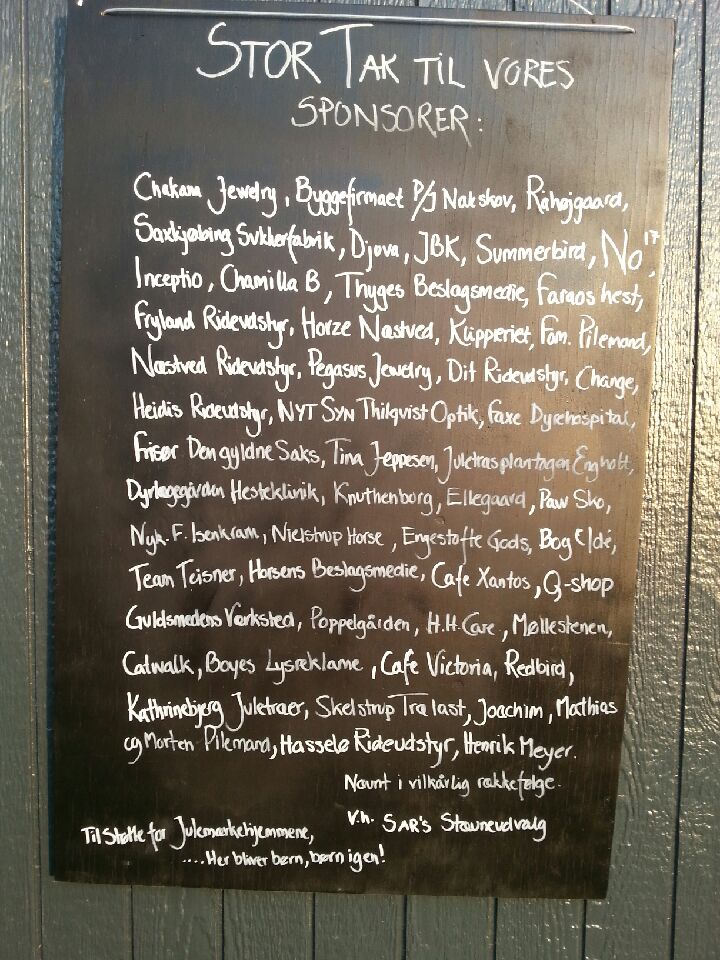 STOR TAK TIL VORES
SPONSORER:
Chakana Jewelry, Byggefirmaet P/J Nakskov, Råhøjgaard,
Saxkjøbing Sukkerfabrik, Djova, JBK, Summerbird, No 17,
Inceptio, Chamilla B, Thyges Beslagsmedie, Faraos hest,
Fryland Rideudstyr, Horze Næstved, Klipperiet, Fam. Pilemand,
Næstved Rideudstyr, Pegasus Jewelry, Dit Rideudstyr, Change,
Heidis Rideudstyr, NYT SYN Thilqvist Optik, Faxe Dyrehospital,
Frisør Den gyldne Saks, Tina Jeppesen, Juletræsplantagen Engholt,
Dyrlægegården Hesteklinik, Knuthenborg, Ellegaard, Paw Sko,
Nyk. F. Isenkram, Nielstrup Horse, Engestofte Gods, Bog & Idé,
Team Teisner, Horsens Beslagsmedie, Cafe Xantos, Q-shop
Guldsmedens Værksted, Poppelgården, H.H. Care, Møllestenen,
Catwalk, Boyes Lysreklame, Cafe Victoria, Redbird,
Kathrinebjerg Juletræer, Skelstrup Trælast, Joachim, Mathias
og Morten Pilemand, Hasselø Rideudstyr, Henrik Meyer.
Nævnt i vilkårlig rækkefølge.
V.h. SAR's Stævneudvalg
Til Støtte for Julemærkehjemmene,
....Her bliver børn, børn igen!